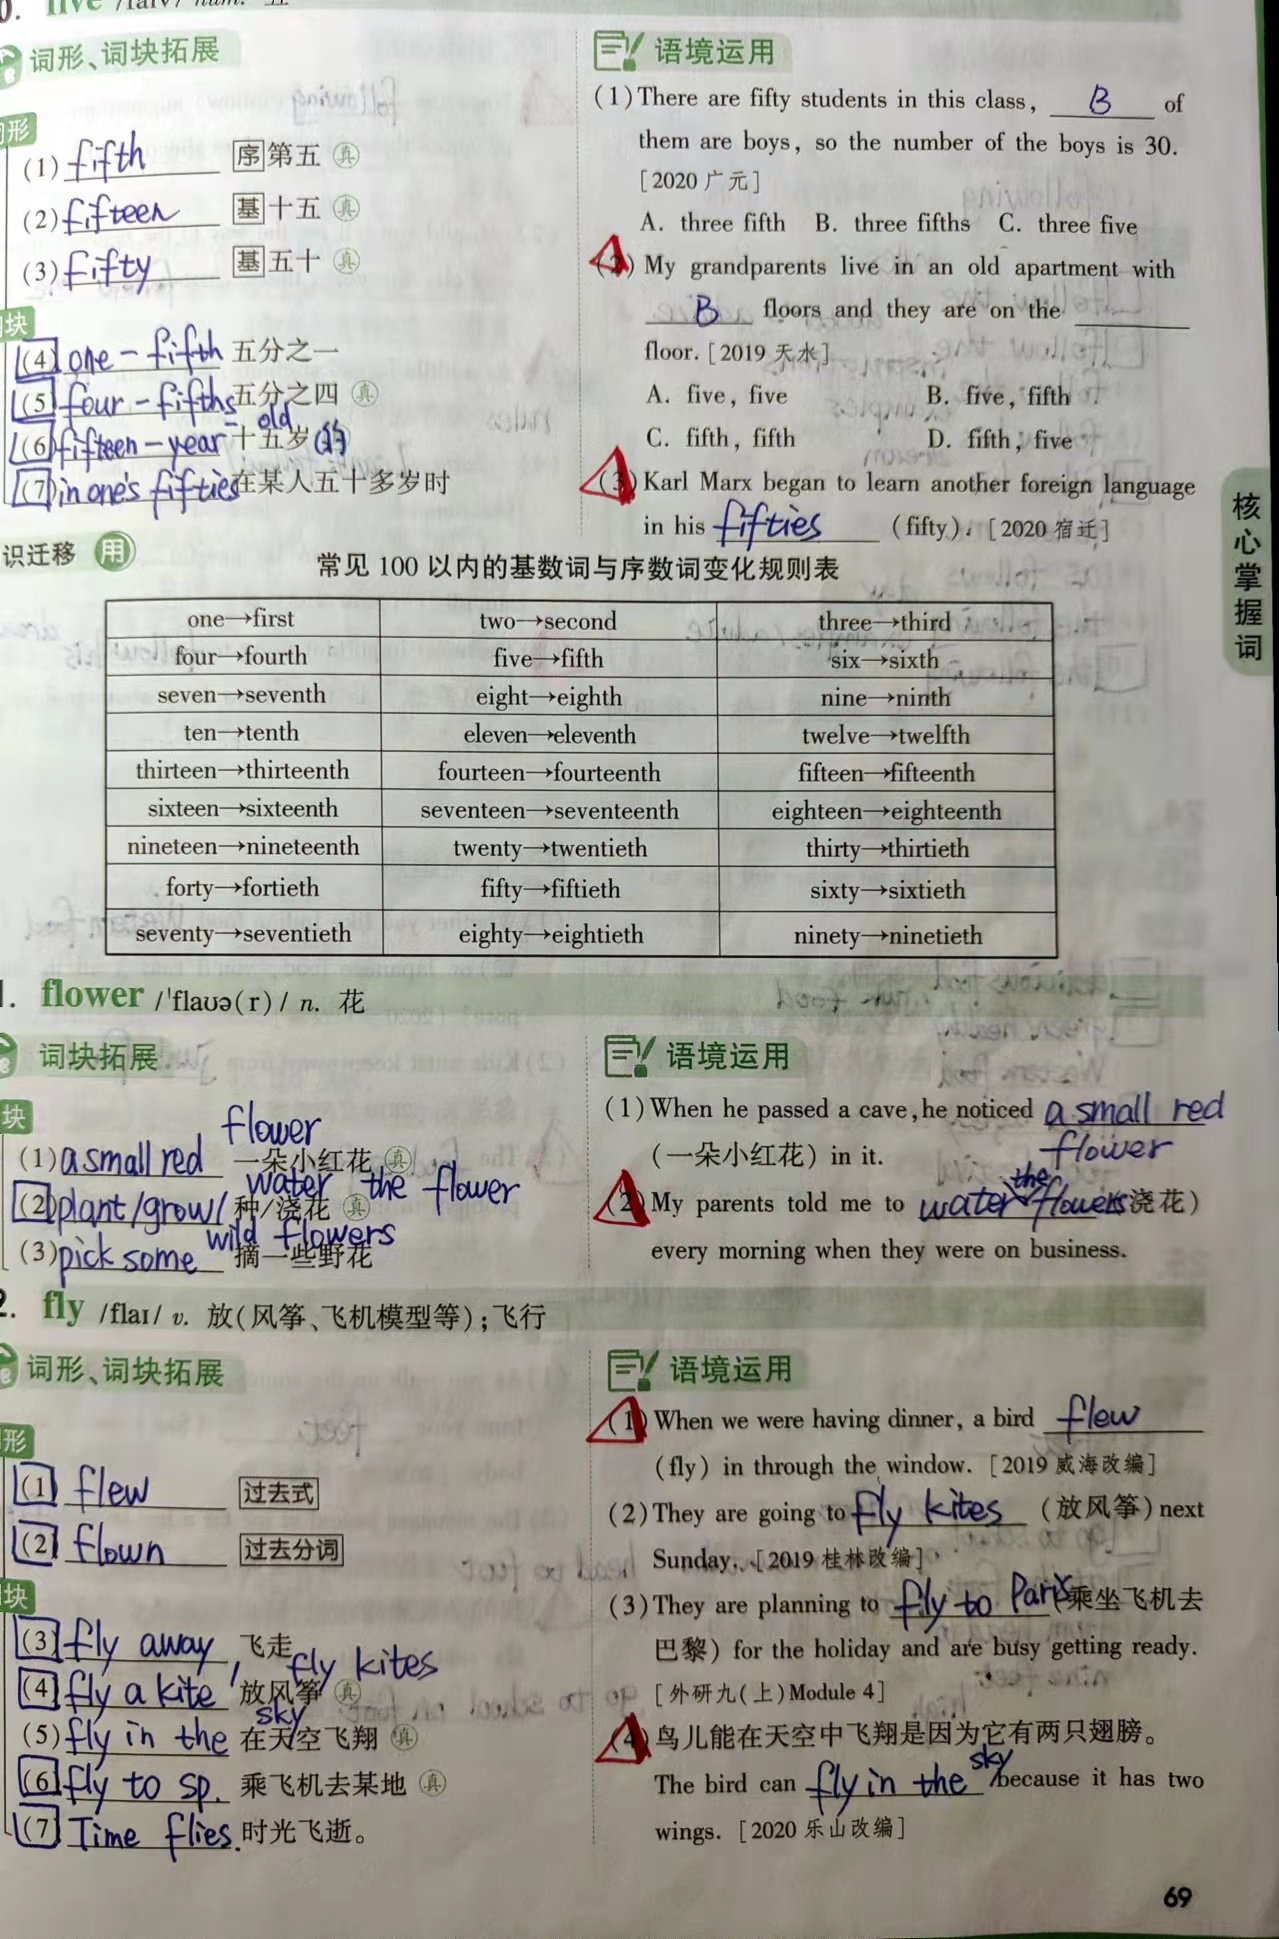 0. five /faɪv/ num. 五
词形、词块拓展
词形
(1) fifth 序 第五 真
(2) fifteen 基 十五 真
(3) fifty 基 五十 真
词块
(4) one-fifth 五分之一
(5) four-fifths 五分之四 真
(6) fifteen-year-old 十五岁(的)
(7) in one's fifties 在某人五十多岁时
语境运用
(1) There are fifty students in this class, B of
them are boys, so the number of the boys is 30.
[2020 广元]
A. three fifth B. three fifths C. three five
(2) My grandparents live in an old apartment with
B floors and they are on the
floor. [2019 天水]
A. five, five B. five, fifth
C. fifth, fifth D. fifth, five
(3) Karl Marx began to learn another foreign language
in his fifties (fifty). [2020 宿迁]
核心掌握词
识迁移 用
常见 100 以内的基数词与序数词变化规则表
one→first two→second three→third
four→fourth five→fifth six→sixth
seven→seventh eight→eighth nine→ninth
ten→tenth eleven→eleventh twelve→twelfth
thirteen→thirteenth fourteen→fourteenth fifteen→fifteenth
sixteen→sixteenth seventeen→seventeenth eighteen→eighteenth
nineteen→nineteenth twenty→twentieth thirty→thirtieth
forty→fortieth fifty→fiftieth sixty→sixtieth
seventy→seventieth eighty→eightieth ninety→ninetieth
1. flower /ˈflaʊə(r)/ n. 花
词块拓展
块
(1) a small red flower 一朵小红花 真
(2) plant/grow/water the flower 种/浇花 真
(3) pick some wild flowers 摘一些野花
语境运用
(1) When he passed a cave, he noticed a small red
flower
(一朵小红花) in it.
(2) My parents told me to water the flowers (浇花)
every morning when they were on business.
2. fly /flaɪ/ v. 放(风筝、飞机模型等);飞行
词形、词块拓展
形
(1) flew 过去式
(2) flown 过去分词
块
(3) fly away 飞走
(4) fly a kite, fly kites 放风筝 真
(5) fly in the sky 在天空飞翔 真
(6) fly to sp. 乘飞机去某地 真
(7) Time flies. 时光飞逝。
语境运用
(1) When we were having dinner, a bird flew
(fly) in through the window. [2019 威海改编]
(2) They are going to fly kites (放风筝) next
Sunday. [2019 桂林改编]
(3) They are planning to fly to Paris (乘坐飞机去
巴黎) for the holiday and are busy getting ready.
[外研九(上)Module 4]
(4) 鸟儿能在天空中飞翔是因为它有两只翅膀。
The bird can fly in the sky because it has two
wings. [2020 乐山改编]
69